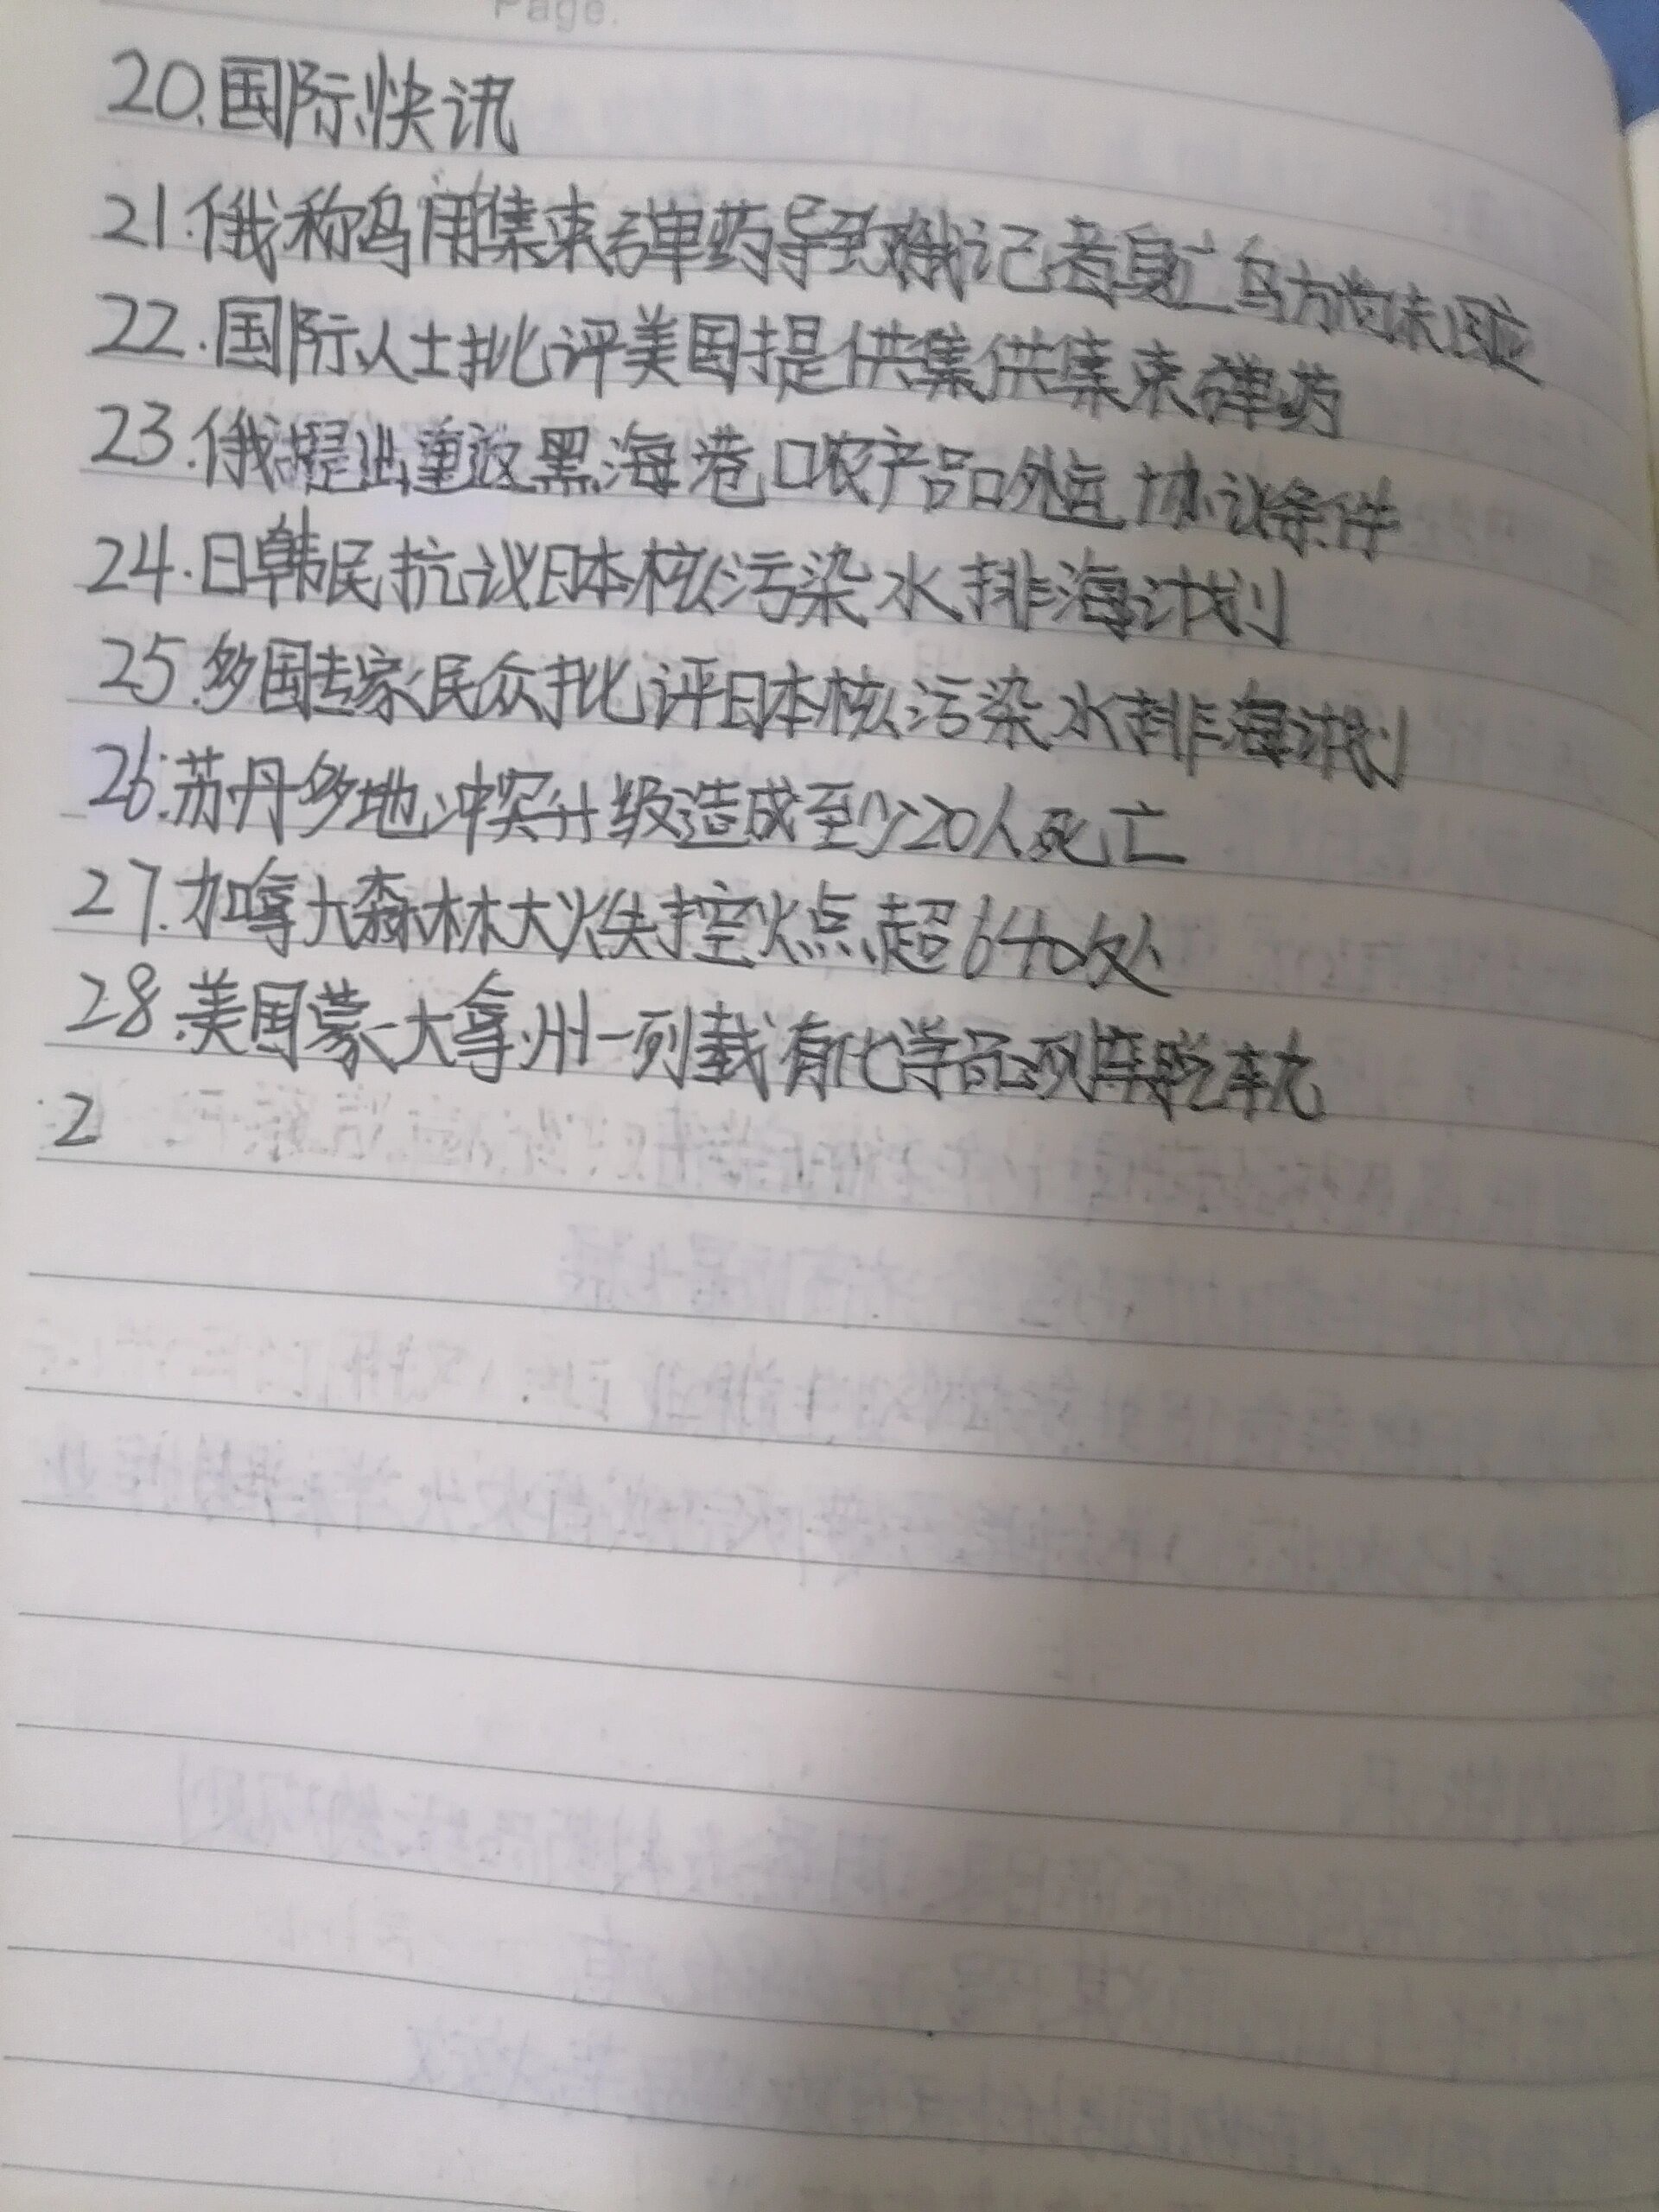 Page.
20.国际快讯
21.俄称乌用集束弹药导致俄记者身亡乌方尚未回应
22.国际人士批评美国提供集供集束弹药
23.俄提出重返黑海港口农产品外运协议条件
24.日韩民抗议日本核污染水排海计划
25.多国专家民众批评日本核污染水排海计划
26.苏丹多地冲突升级造成至少20人死亡
27.加拿大森林大火失控火点超640处
28.美国蒙大拿州一列载有化学品列车脱轨
2